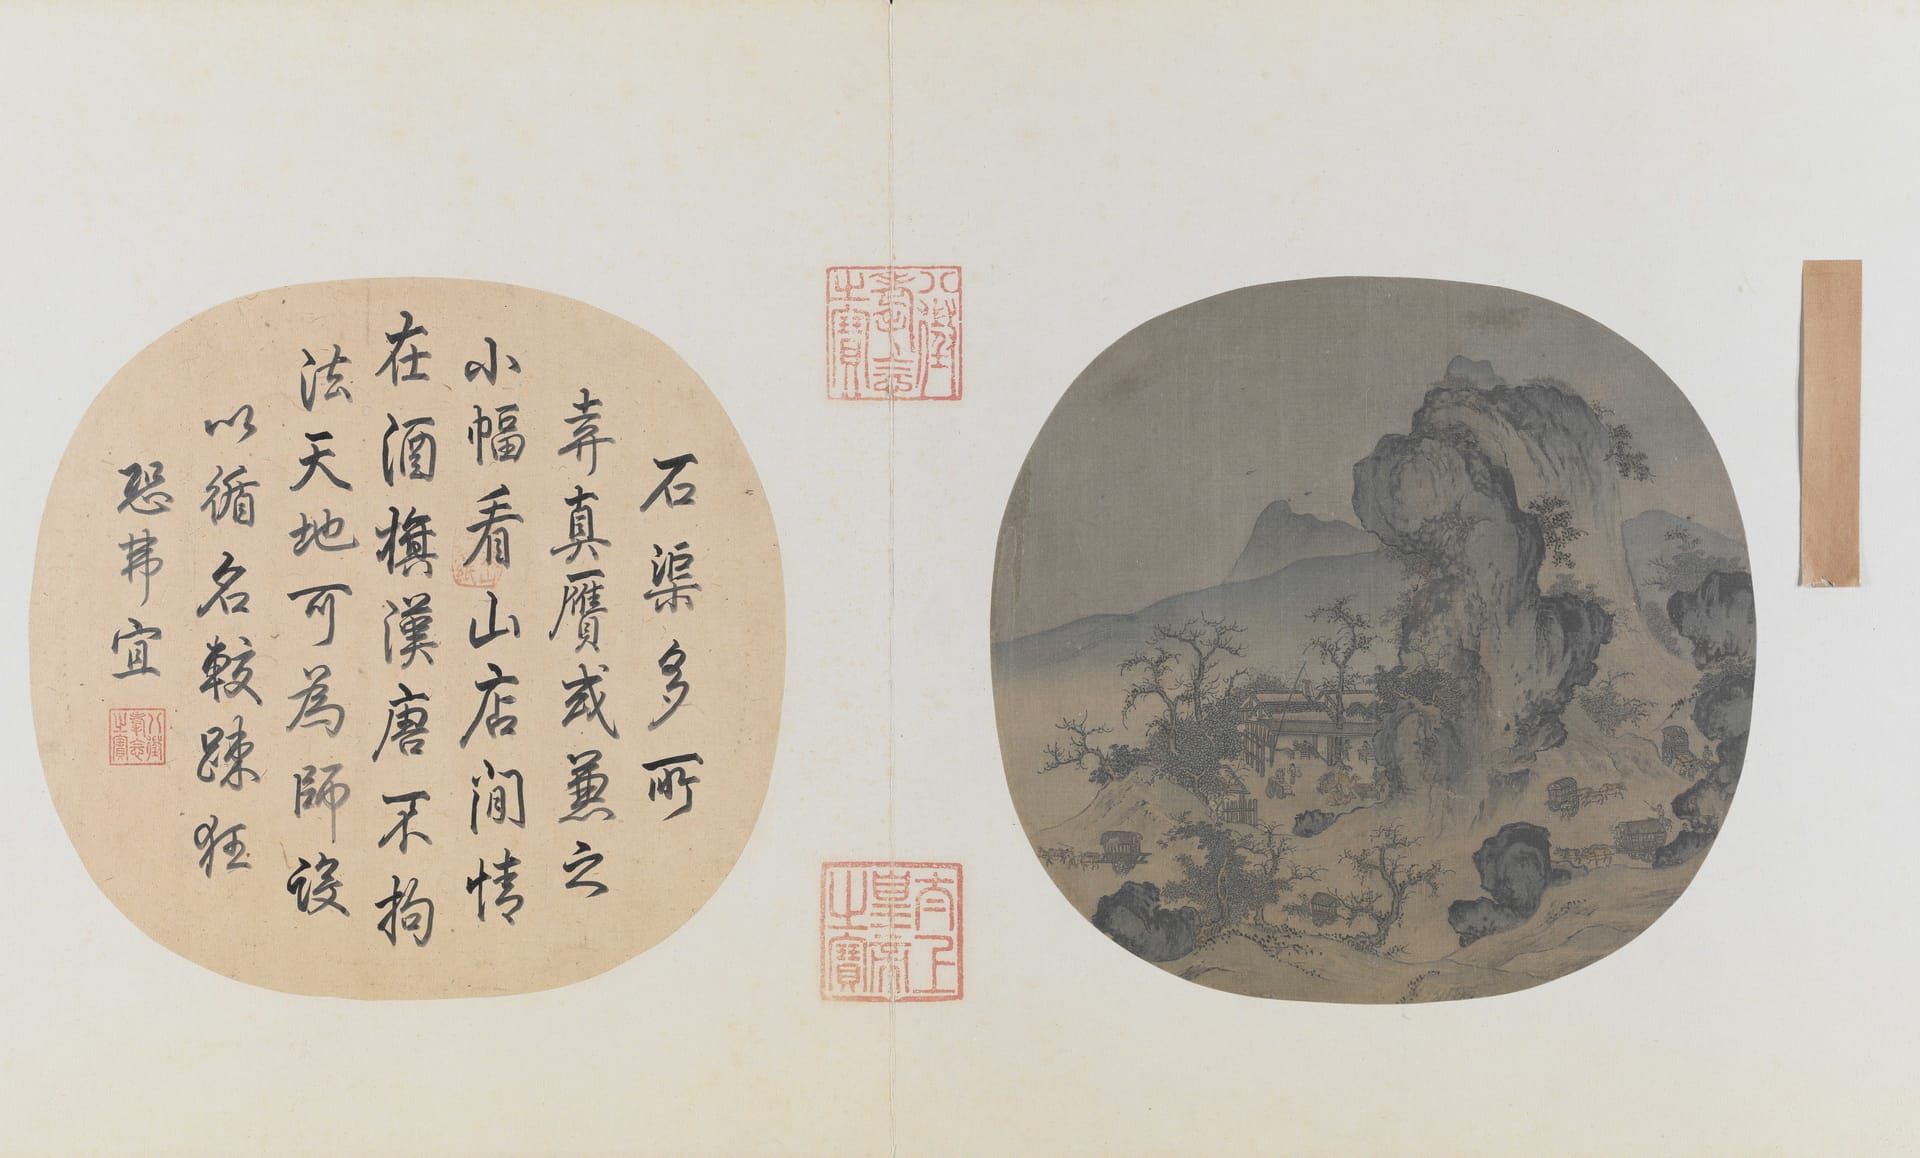 石渠多所
弆真贋或兼之
小幅看山店閒情
在酒旗漢唐不拘
法天地可為師設
以循名較踈狂
恐弗宜
八徵耄念之寶
八徵耄念之寶
太上皇帝之寶